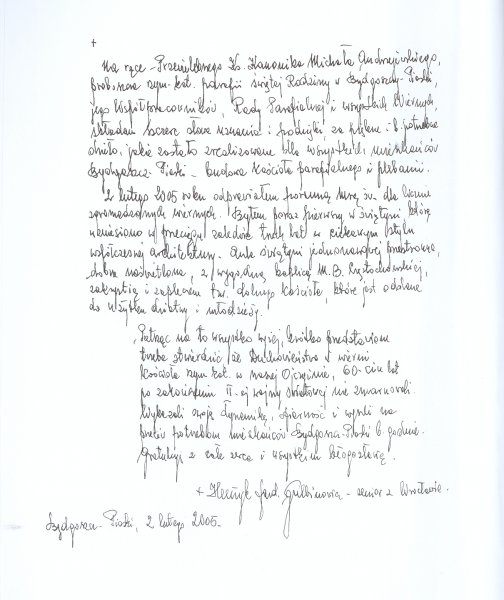 +
Na ręce Przewielebnego Ks. Kanonika Michała Andrzejewskiego,
proboszcza rzym-kat. parafii świętej Rodziny w Bydgoszczy-Piaski,
jego Współpracowników, Rady Parafialnej i wszystkich Wiernych,
składam szczere słowa uznania i podzięki, za piękne i b. potrzebne
dzieło, jakie zostało zrealizowane dla wszystkich mieszkańców
Bydgoszcz-Piaski - budowa kościoła parafialnego i plebanii.
2 lutego 2005 roku odprawiałem poranną mszę św. dla licznie
zgromadzonych wiernych. Byłem poraz pierwszy w świątyni, którą
wzniesiono w przeciągu zaledwie trzech lat w ciekawym stylu
współczesnej architektury. Cała świątynia jednonawowa, przestronna,
dobrze naświetlona, z wygodną kaplicą M. B. Częstochowskiej,
zakrystią i zapleczem tzw. dolnego kościoła, które jest oddane
do użytku dziatwy i młodzieży.
Patrząc na to wszystko wyżej, krótko przedstawione
trzeba stwierdzić że Duchowieństwo i wierni
Kościoła rzym kat. w naszej Ojczyźnie, 60-ciu lat
po zakończeniu II-ej wojny światowej nie zmarnowali.
Wykazali swoją dynamikę, ofiarność i wyszli na
przeciw potrzebom mieszkańców Bydgoszcz-Piaski b. godnie.
Gratuluję z całego serca i wszystkim błogosławię.
+ Henryk Kard. Gulbinowicz - senior z Wrocławia.
Bydgoszcz-Piaski, 2 lutego 2005.